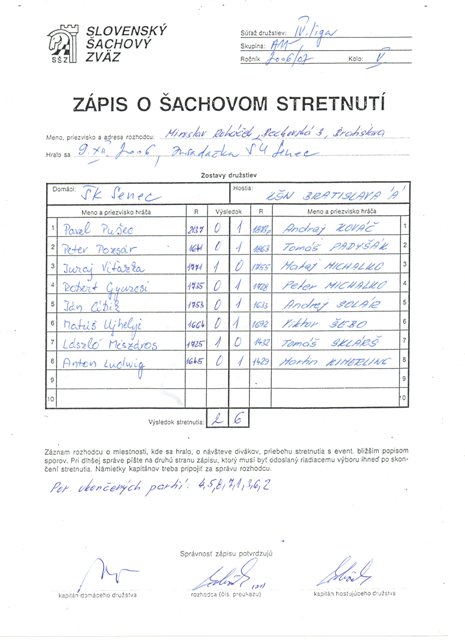 SLOVENSKÝ
ŠACHOVÝ
ZVÄZ
SŠZ
Súťaž družstiev: IV. liga
Skupina:
Ročník 2006/07 Kolo: V
ZÁPIS O ŠACHOVOM STRETNUTÍ
Meno, priezvisko a adresa rozhodcu: Miroslav
Hralo sa 9. XII. 2006, Senec
Zostavy družstiev
Domáci: ŠK Senec Hostia: BRATISLAVA 'A'
Meno a priezvisko hráča R Výsledok R Meno a priezvisko hráča
1 Pavel 0 1 Andrej KOVÁČ 1
2 Peter 0 1 Tomáš PADYŠÁK 2
3 Juraj 1771 1 0 1755 Matej MICHALKO 3
4 Robert Gyuresi 0 1 Peter MICHALKO 4
5 Ján 1753 0 1 1633 Andrej 5
6 Matúš Ujhelyi 1664 0 1 1692 Viktor ŠEBO 6
7 László Mészáros 1725 1 0 1432 Tomáš 7
8 Anton Ludwig 1645 0 1 1429 Martin KIMERLING 8
9 9
10 10
Výsledok stretnutia: 2 6
Záznam rozhodcu o miestnosti, kde sa hralo, o návšteve divákov, priebehu stretnutia s event. bližším popisom
sporov. Pri dlhšej správe píšte na druhú stranu zápisu, ktorý musí byť odoslaný riadiacemu výboru ihneď po skon-
čení stretnutia. Námietky kapitánov treba pripojiť za správu rozhodcu.
Por. ukončených partií: 4,5,8,7,1,3,6,2
Správnosť zápisu potvrdzujú
kapitán domáceho družstva rozhodca (čís. preukazu) kapitán hosťujúceho družstva